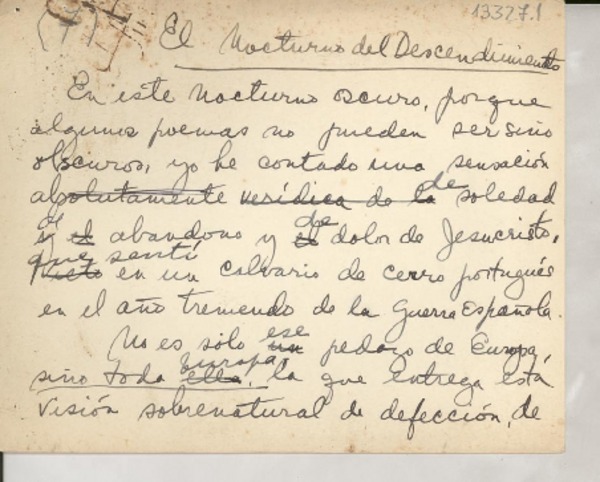 13327.1
(7) El Nocturno del Descendimiento
En este nocturno oscuro, porque
algunos poemas no pueden ser sino
obscuros, yo he contado una sensación
absolutamente verídica de la de soledad
y el de abandono y el de dolor de Jesucristo,
que sentí
en un calvario de cerro portugués
en el año tremendo de la Guerra Española.
No es sólo un ese pedazo de Europa,
sino toda ella, Europa, la que entrega esta
visión sobrenatural de defección, de